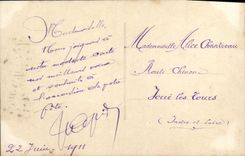 Mademoiselle
Nous joignons à
notre modeste carte
nos meilleurs vœux
et souhaits à
l'occasion de votre
fête.
22 Juin 1911
Mademoiselle Alice
Route Chinon
Joué les Tours
(Indre et Loire)